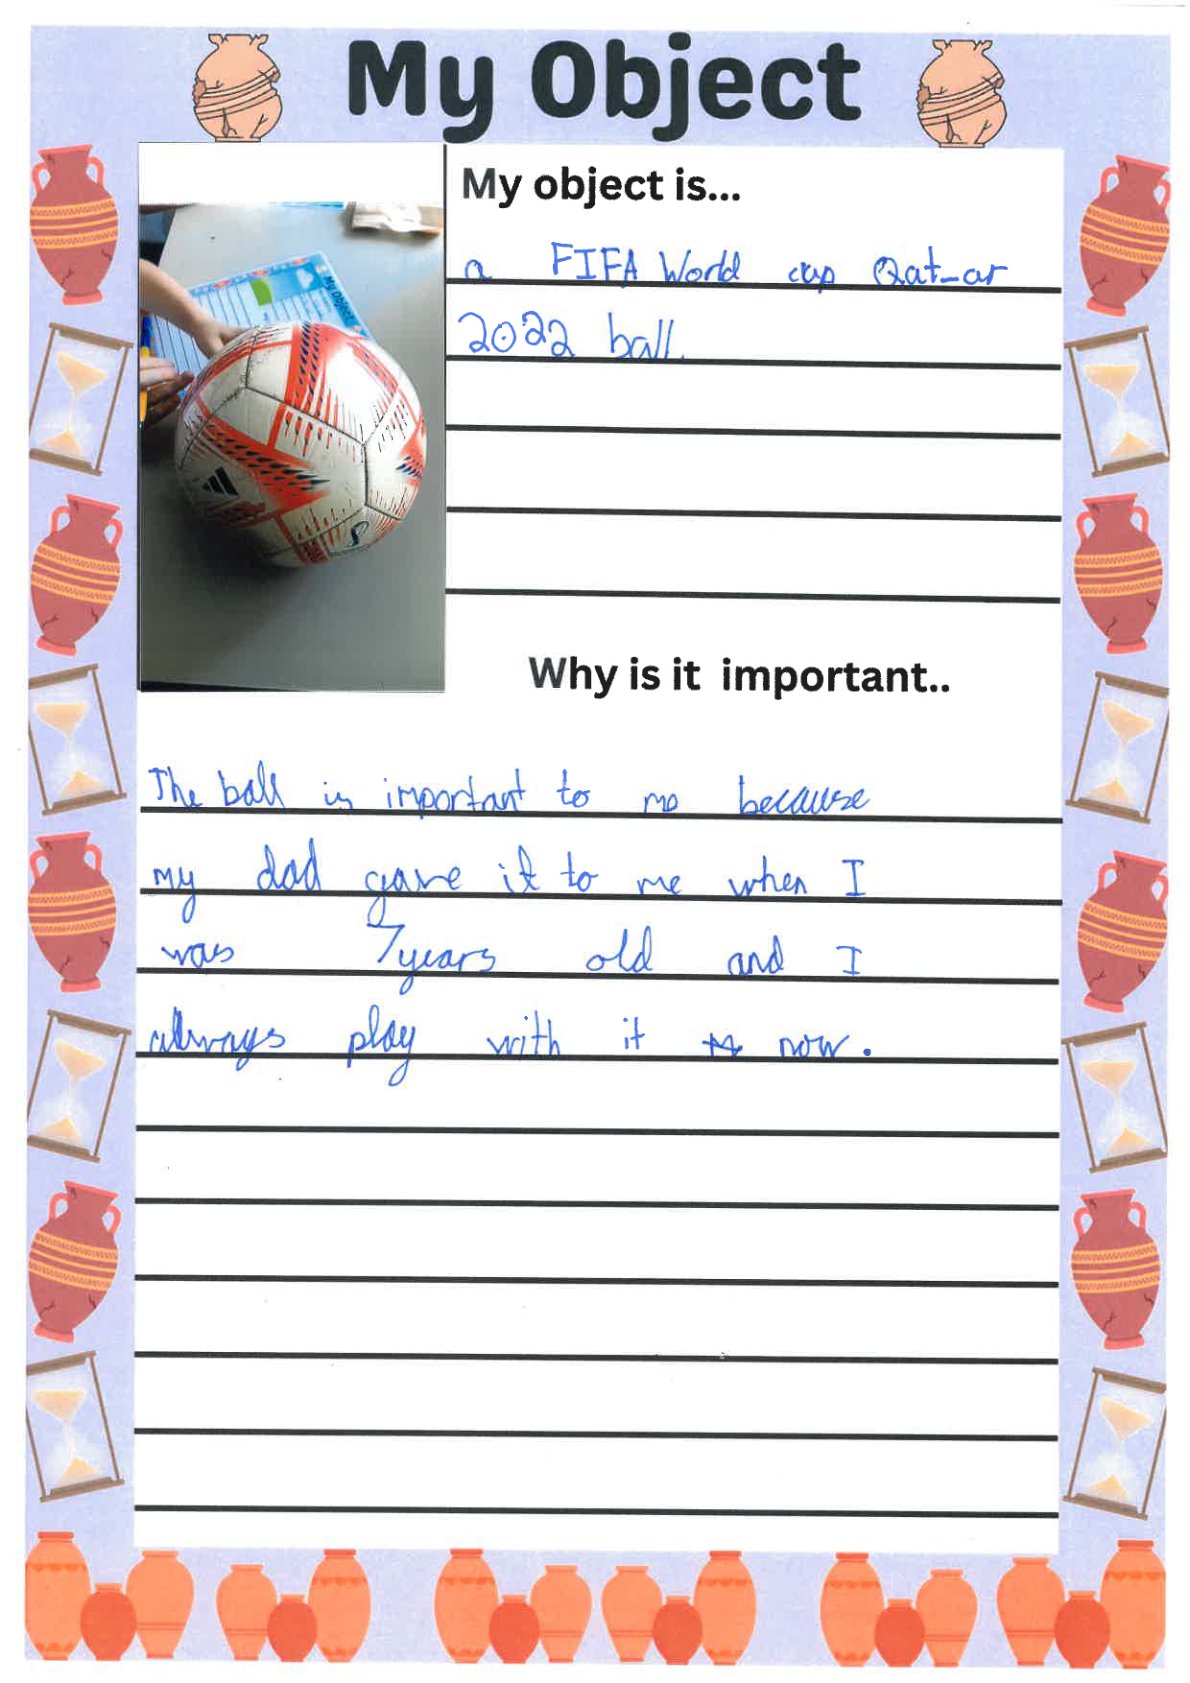 My Object
My object is...
a FIFA World cup Qat-ar
2022 ball.
Why is it important..
The ball is important to me because
my dad gave it to me when I
was 7years old and I
always play with it now.